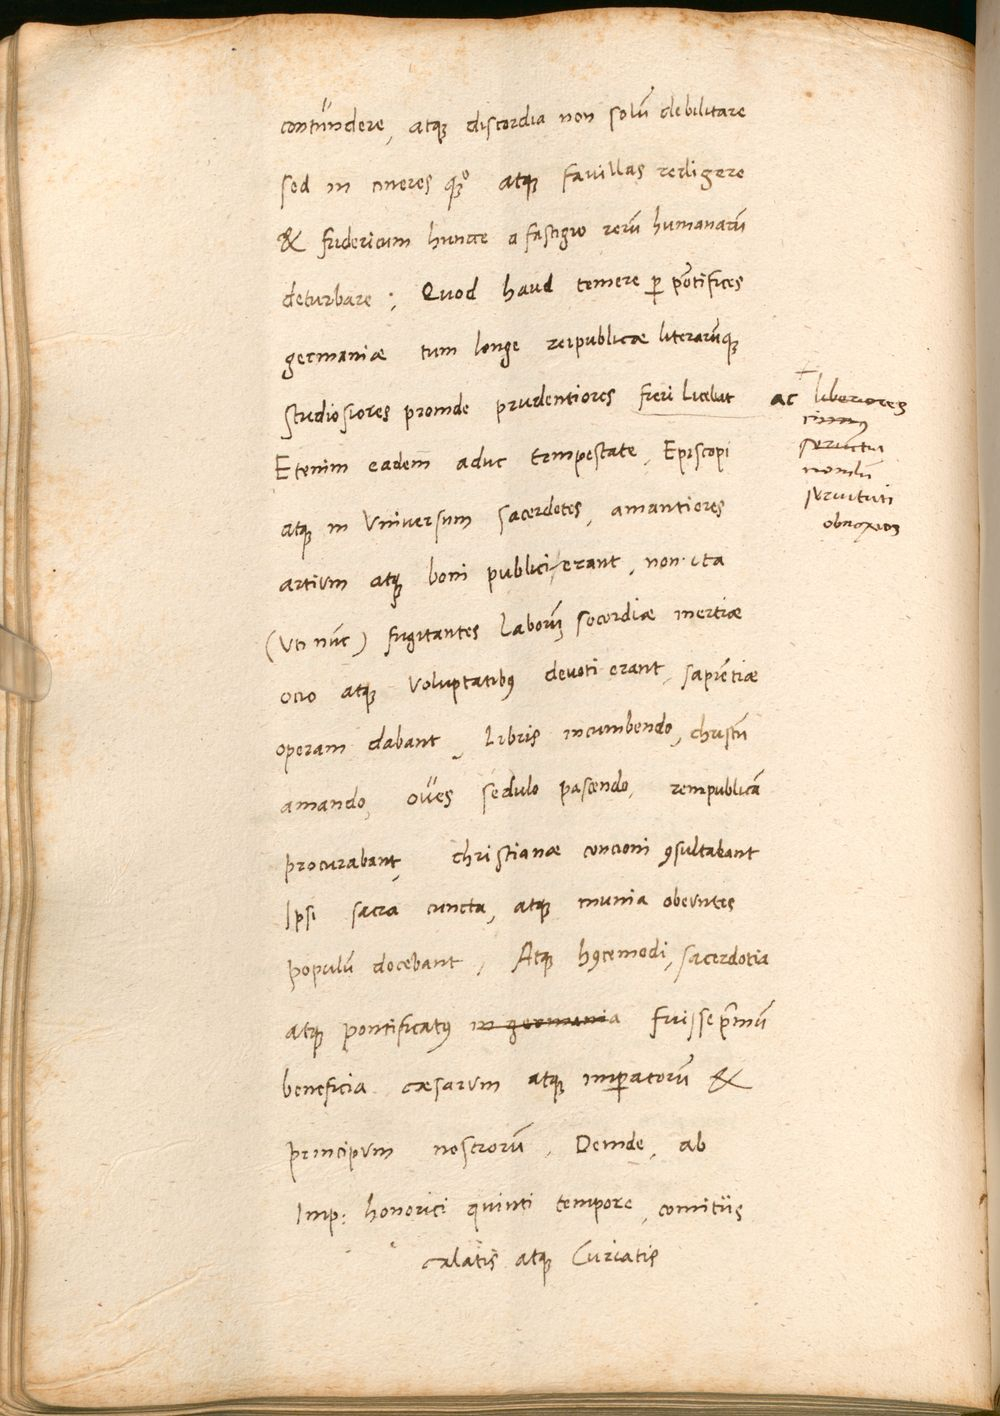 contŭndere, atq̨ discordia non solū debilitare
sed in cineres q̨̊ atq̨ fauillas redigere
& fridericum hunce a fastigio rerū humanarū
deturbare ; Quod haud temere p̱ põtifices
germaniæ tum longe reipublicæ literarūq̨
studiosiores proinde prudentiores fieri licebit
ac liberiores
seruituti
obnoxios
Etenim eadem̄ aduc tempestate, Episcopi
atq̨ in Vniuersum sacerdotes, amantiores
artium atq̨ boni publici erant, non ita
(Vti nūc) fugitantes Laborū, socordiæ inertiæ
ocio atq̨ Voluptatibꝰ devoti erant, sapiētiæ
operam dabant, Libris incumbendo, christū
amando, oŭes sedulo pascendo, rempublicā
procurabant, christianæ concioni ꝯsultabant
Ipsi sacra cuncta, atq̨ munia obeuntes
populū docebant, Atq̨ hꝰcemodi, sacerdotia
atq̨ pontificatꝰ in germania fuisse p̄imū
beneficia cæsarum atq̨ imp̱atorū &
principum nostrorū, Deinde, ab
Imp: honorici quinti tempore, comitiis
calatis atq̨ Curiatis